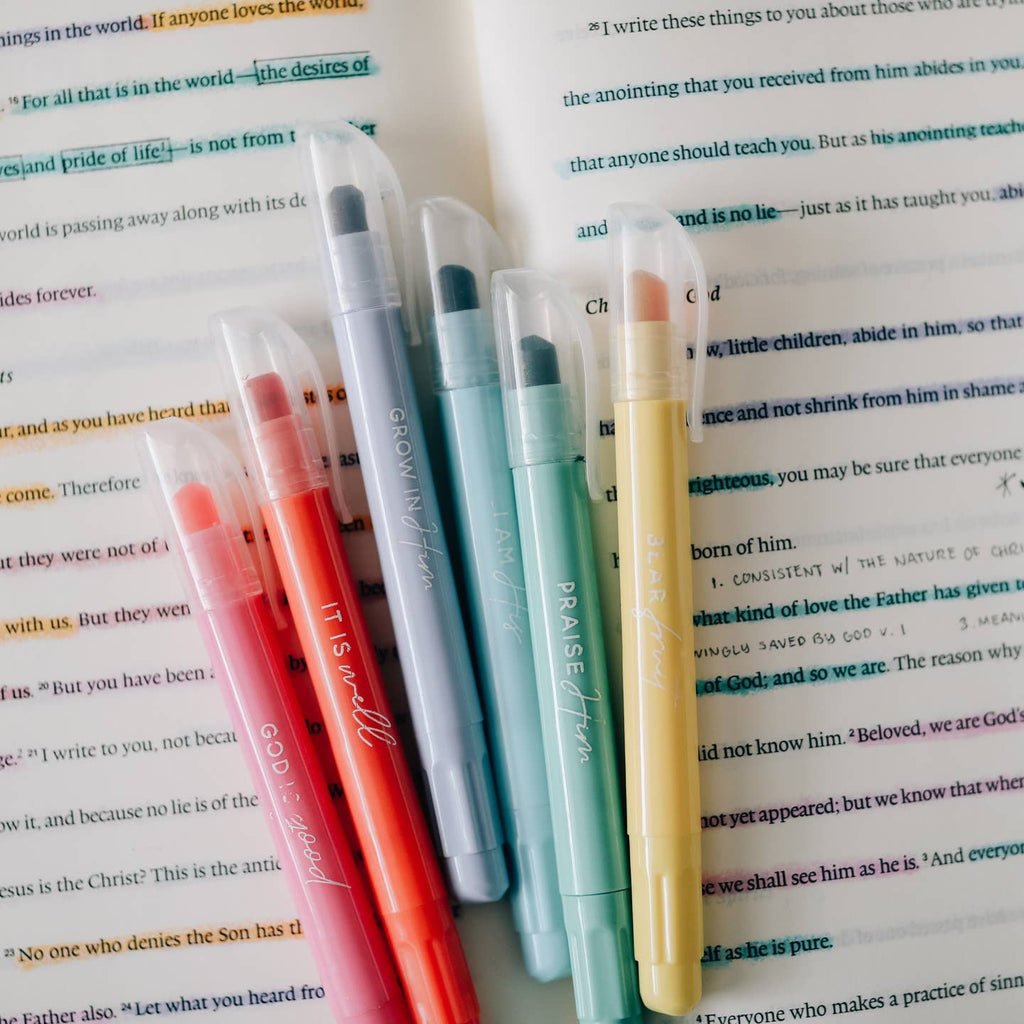 ings in the world. If anyone loves the world,
16 For all that is in the world—the desires of
and pride of life¹—is not from
world is passing away along with its
ides forever.
and as you have heard
come. Therefore
they were not of
with us. But they
of us. 20 But you have been
21 I write to you, not
it, and because no lie is of the
esus is the Christ? This is the
23 No one who denies the Son has
Father also. 24 Let what you heard
26 I write these things to you about those who are
the anointing that you received from him abides in you,
that anyone should teach you. But as his anointing
and and is no lie—just as it has taught you,
little children, abide in him, so that
ence and not shrink from him in shame
righteous, you may be sure that everyone
born of him.
1. CONSISTENT W/ THE NATURE OF
what kind of love the Father has given
INGLY SAVED BY GOD V. 1 3. MEAN
of God; and so we are. The reason why
did not know him. 2 Beloved, we are God's
not yet appeared; but we know that when
we shall see him as he is. 3 And
as he is pure.
4 Everyone who makes a practice of
GOD IS good
IT IS well
GROW IN Him
I AM His
PRAISE Him
BEAR fruit